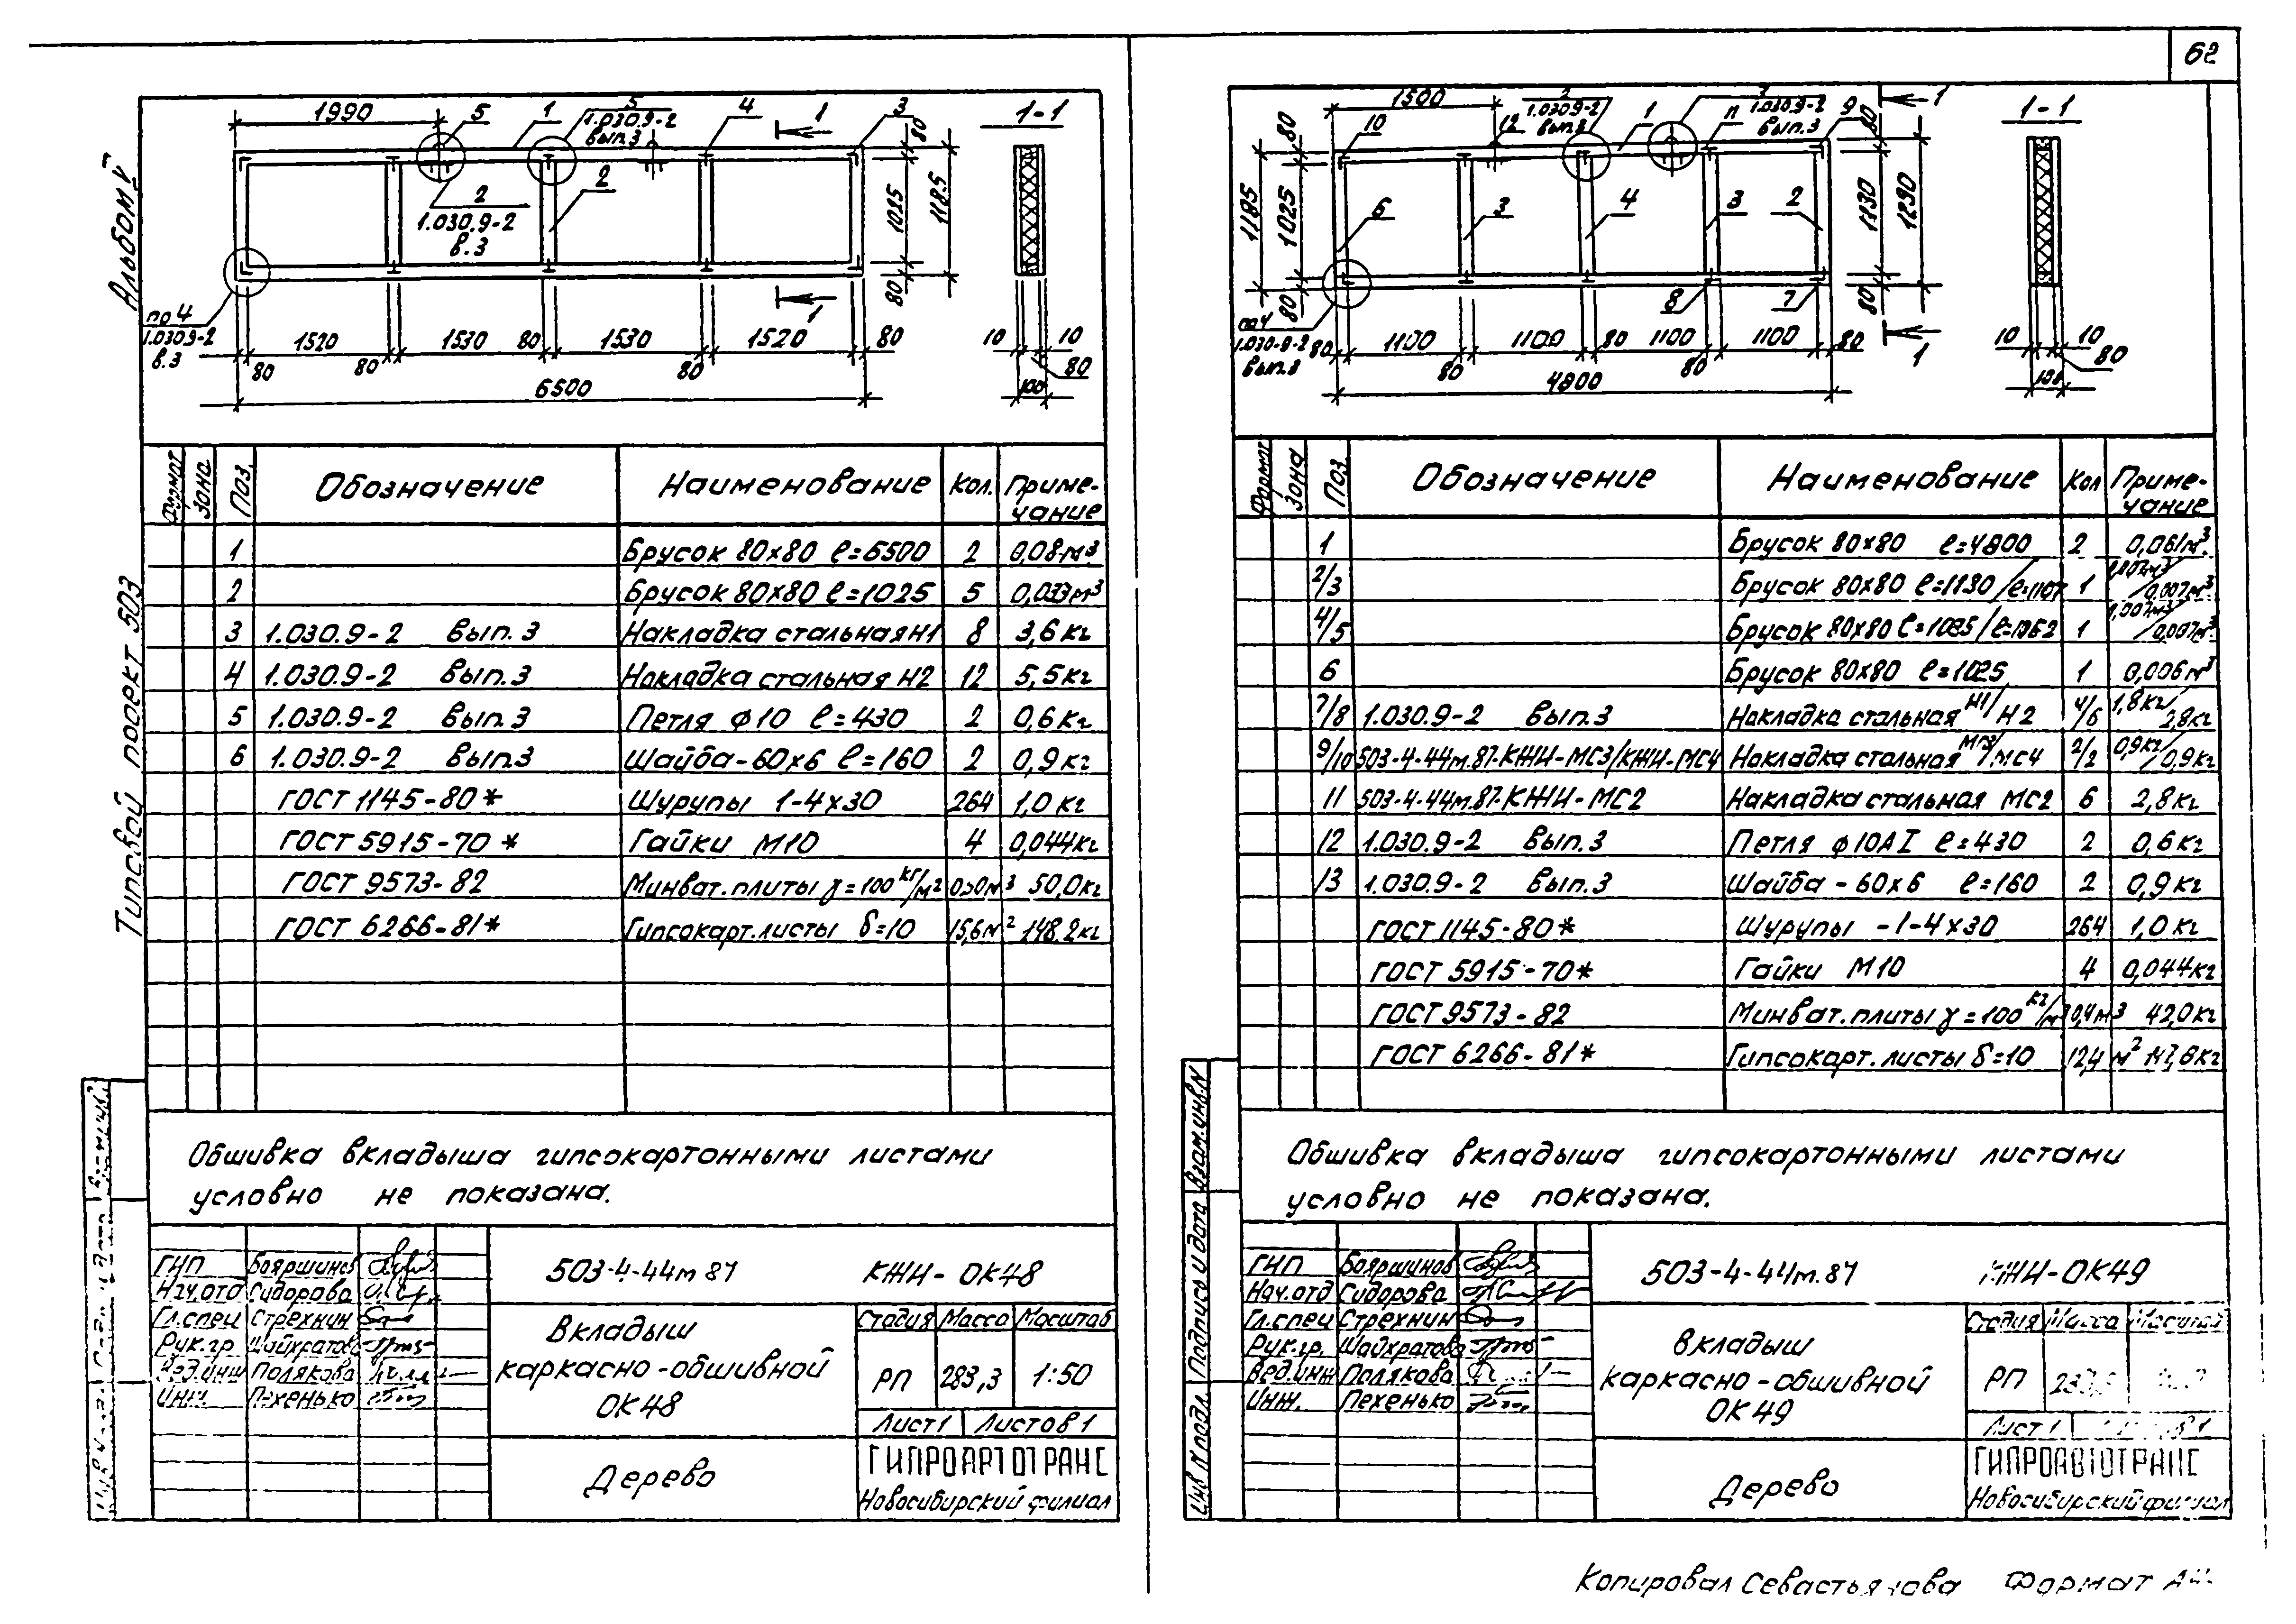 62
Альбом V
Типовой проект 503
1990
5
1
5
1.030.9-2
вып.3
4
1
3
80
1-1
2
1.030.9-2
в.3
2
1025
1185
80
1
по 4
1.030.9-2
в.3
1520
1530
80
1530
1520
80
80
80
80
6500
10
10
80
100
Формат
Зона
Поз.
Обозначение
Наименование
Кол.
Примечание
1 Брусок 80х80 ℓ=6500 2 0,08м³
2 Брусок 80х80 ℓ=1025 5 0,033м³
3 1.030.9-2 вып. 3 Накладка стальная Н1 8 3,6 кг
4 1.030.9-2 вып.3 Накладка стальная Н2 12 5,5 кг
5 1.030.9-2 вып.3 Петля ф10 ℓ=430 2 0,6 кг
6 1.030.9-2 вып.3 Шайба-60х6 ℓ=160 2 0,9 кг
ГОСТ 1145-80* Шурупы 1-4х30 264 1,0 кг
ГОСТ 5915-70* Гайки М10 4 0,044кг
ГОСТ 9573-82 Минват.плиты γ=100 кг/м² 0,50м³ 50,0кг
ГОСТ 6266-81* Гипсокарт.листы δ=10 15,6м² 148,2кг
Обшивка вкладыша гипсокартонными листами
условно не показана.
ГИП Бояршинов
Нач.отд Сидорова
Гл.спец Стрехнин
Рук.гр. Шайхратова
Вед.инж Полякова
Инж. Пехенько
503-4-44м 87 КЖИ-ОК48
Вкладыш
каркасно-обшивной
ОК48
Стадия Масса Масштаб
РП 283,3 1:50
Лист 1 Листов 1
Дерево
ГИПРОАВТОТРАНС
Новосибирский филиал
1500
12
2
1.030.9-2
вып.3
1
1.030.9-2
вып.3
11
9
1
80
1-1
10
80
1185
1025
6
3
4
3
2
1130
1290
80
8
7
80
по 4
1.030.9-2
вып.3
80
1100
1100
80
1100
1100
80
80
80
4800
1
10
10
80
100
Формат
Зона
Поз.
Обозначение
Наименование
Кол
Примечание
1 Брусок 80х80 ℓ=4800 2 0,061м³
2/3 Брусок 80х80 ℓ=1130/ℓ=1107 1 0,007м³/0,007м³
4/5 Брусок 80х80 1 0,007м³/0,007м³
6 Брусок 80х80 ℓ=1025 1 0,006м³
7/8 1.030.9-2 вып.3 Накладка стальная Н1/Н2 4/6 1,8кг/2,8кг
9/10 503-4-44м.87-КЖИ-МС3/КЖИ-МС4 Накладка стальная МС3/МС4 2/2 0,9кг/0,9кг
11 503-4-44м.87-КЖИ-МС2 Накладка стальная МС2 6 2,8кг
12 1.030.9-2 вып.3 Петля ф10АI ℓ=430 2 0,6кг
13 1.030.9-2 вып.3 Шайба-60х6 ℓ=160 2 0,9кг
ГОСТ 1145-80* Шурупы -1-4х30 264 1,0кг
ГОСТ 5915-70* Гайки М10 4 0,044кг
ГОСТ 9573-82 Минват.плиты γ=100 кг/м³ 0,4м³ 42,0кг
ГОСТ 6266-81* Гипсокарт.листы δ=10 12,4 м²
Обшивка вкладыша гипсокартонными листами
условно не показана.
Взам.инв.N
Подпись и дата
Инв.N подл.
ГИП Бояршинов
Нач.отд Сидорова
Гл.спец Стрехнин
Рук.гр. Шайхратова
Вед.инж Полякова
Инж. Пехенько
503-4-44м.87 КЖИ-ОК49
Вкладыш
каркасно-обшивной
ОК49
Стадия Масса Масштаб
РП
Лист 1
Дерево
ГИПРОАВТОТРАНС
Новосибирский филиал
Копировал Севастьянова Формат